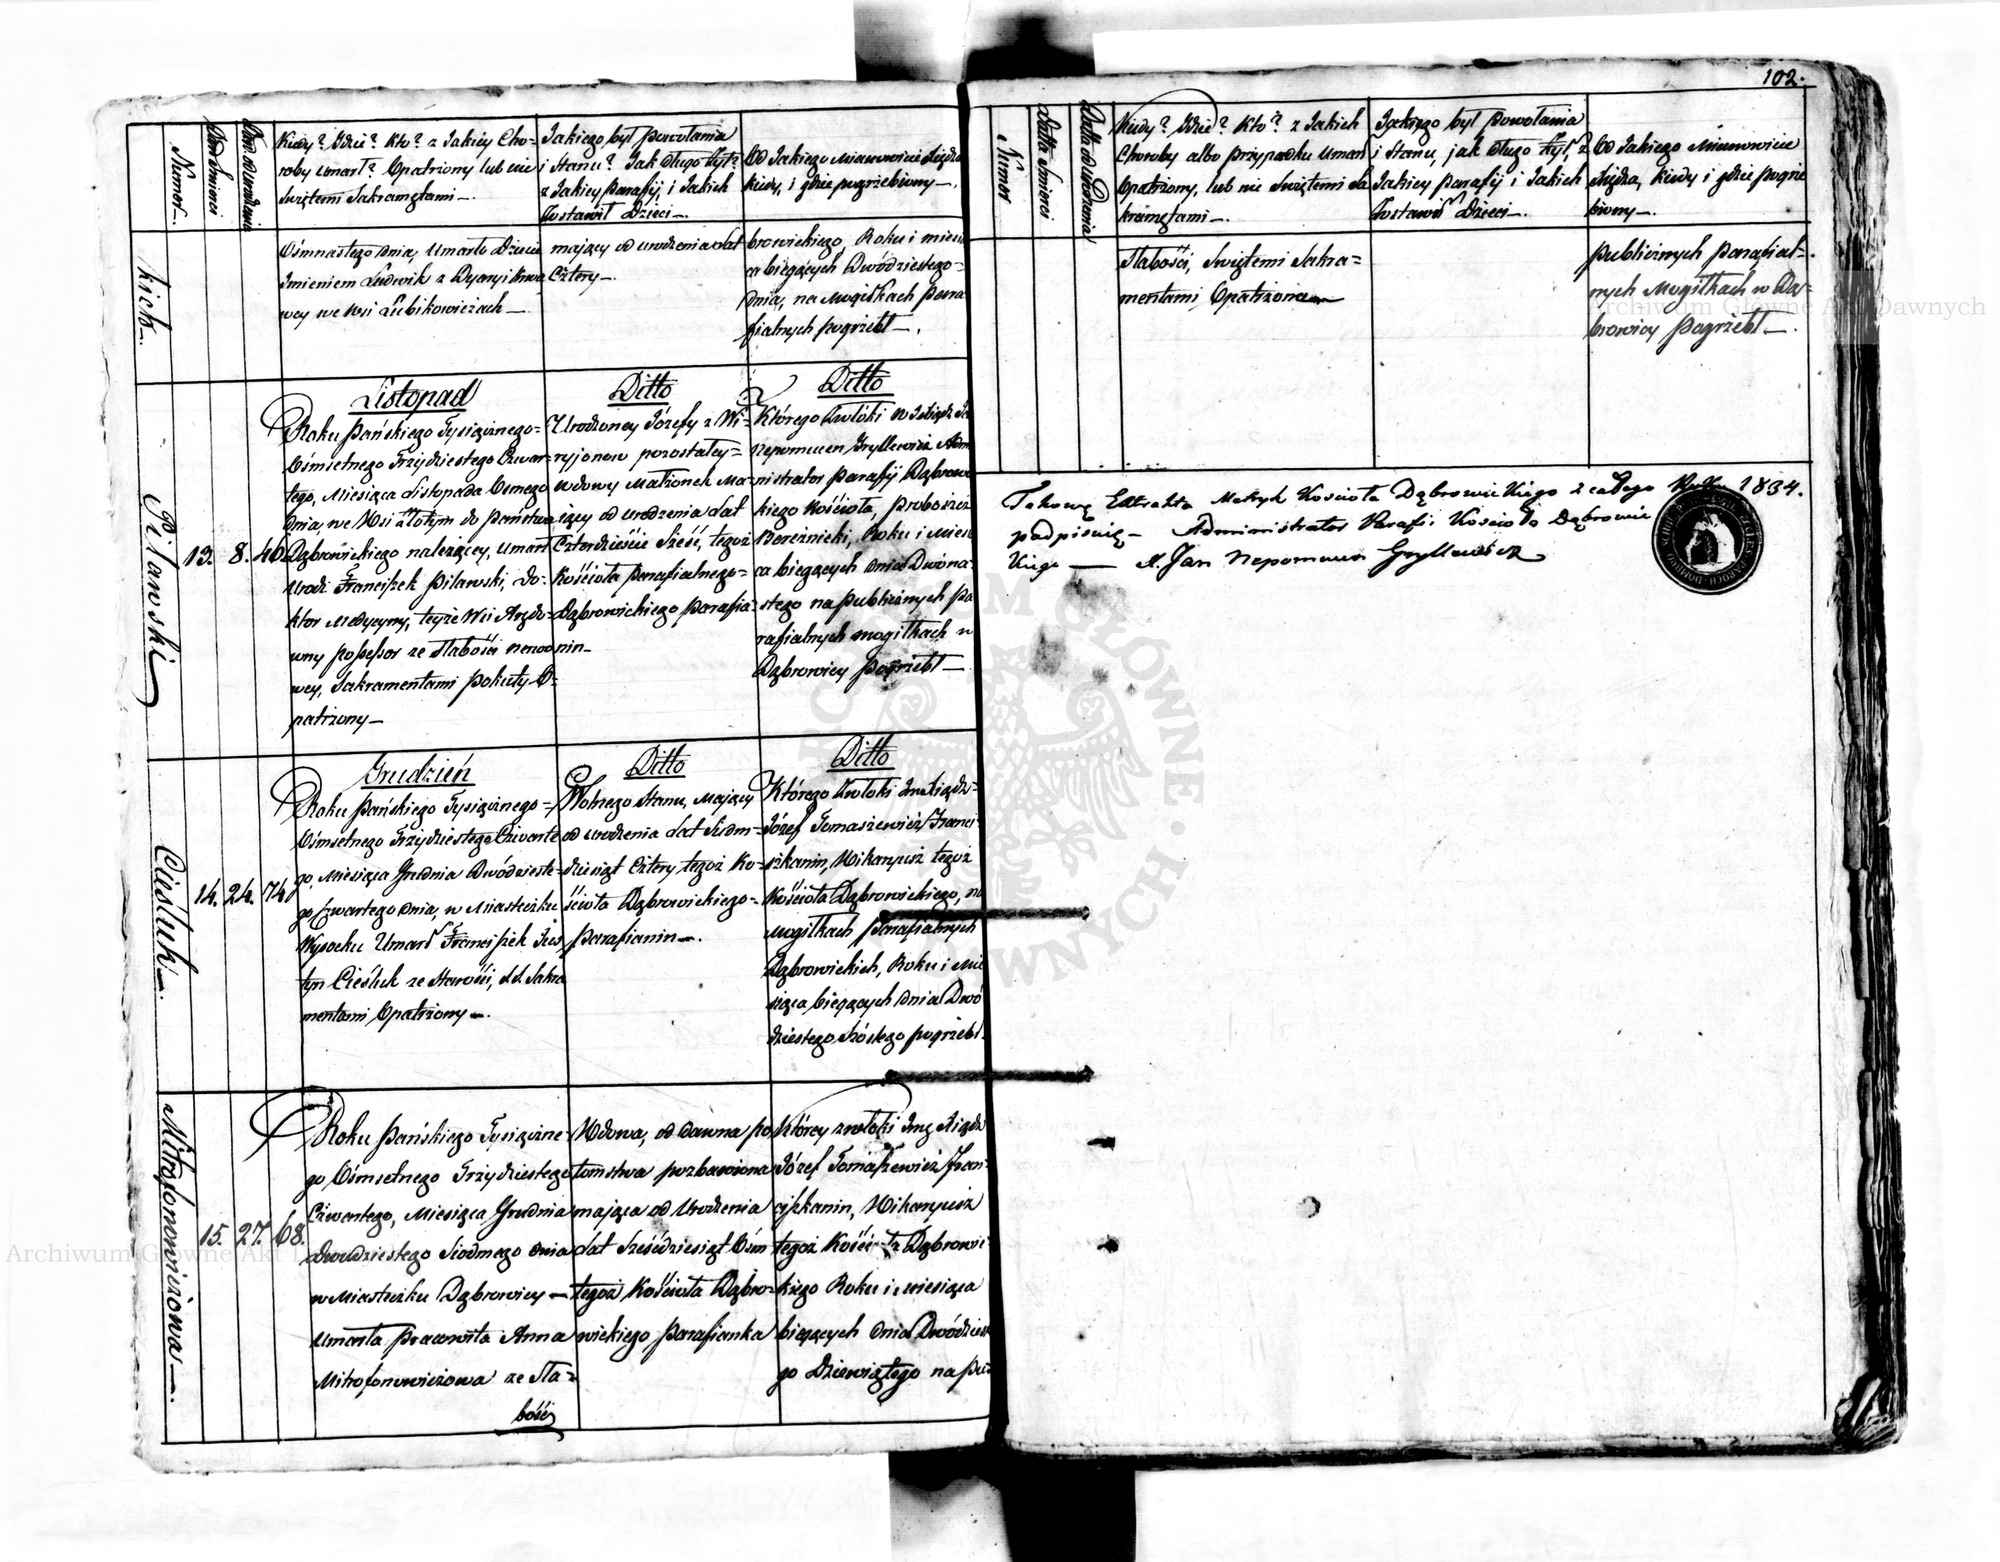 102.
Numor.
Dnia Śmierci
Kiedy? Gdzie? Kto? z Jakiey Cho-
roby umarł? Opatrzony lub nie
Świętemi Sakramętami —.
Jakiego był Powołania
i Stanu? Jak długo żył?
z Jakiey Parafij i Jakich
Zostawił Dzieci —.
Od Jakiego Mianowicie Xiędza
kiedy, i gdzie pogrzebiony —.
kich —.
Ośmnastego dnia, Umarło Dziecie
Jmieniem Ludwik z Dyaryi krwa
wey we Wsi Lubikowiczach —
mający od urodzenia Lat
Cztery —.
browickiego, Roku i miesią
ca bieżących Dwódziestego =
dnia, na Mogiłkach Para
fialnych pogrzebł —.
Pilawski
13. 8. 46
Listopad
Roku Pańskiego Tysiącznego =
Ośmsetnego Trzydziestego Czwar-
tego, Miesiąca Listopada Osmego
dnia, we Wsi Złotym do Państwa
Dąbrowickiego należącey, umarł
Urodz: Franciszek Pilawski, Do-
ktor Medycyny, teyże Wsi Arędo-
wny possessor ze słabości nerwo
wey, Sakramentami Pokuty O=
patrzony —
Ditto
Urodzoney Józefy z Wi-
ryjonow pozostałey =
wdowy Małżonek Ma-
iący od urodzenia Lat
Czterdzieście Sześć, tegoż
Kościoła Parafialnego =
Dąbrowickiego Parafia-
nin —
Ditto
Którego Zwłoki W. Jxiądz Ja
Nepomucen Gryllewicz Adm
nistrator Parafij Dąbrowi
ckiego Kościoła, Proboszcz
Bereźnicki, Roku i Miesią
ca bieżących dnia Dwóna-
stego na Publicznych Pa
rafialnych mogiłkach w
Dąbrowicy Pogrzebł —
Cieśluk —.
14. 24. 74
Grudzień
Roku Pańskiego Tysiącznego =
Ośmsetnego Trzydziestego Czwarte
go, Miesiąca Grudnia Dwódzieste-
go Czwartego dnia, w Miasteczku
Wysocku Umarł Franciszek Jus
tyn Cieśluk ze Starości, SS. Sakra
mentami Opatrzony —.
Ditto
Wolnego Stanu, Mający
od urodzenia Lat Siedm =
dziesiąt Cztery, tegoż Ko-
ścioła Dąbrowickiego =
Parafianin —.
Ditto
Którego Zwłoki Jmć Xiądz =
Józef Tomaszewicz Franci-
szkanin, Wikaryusz tegoż
Kościoła Dąbrowickiego, na
Mogiłkach Parafialnych
Dąbrowickich, Roku i Mie
siąca bieżących dnia Dwó
dziestego Szóstego pogrzebł.
Mitrofonowiczowa —.
15. 27. 68.
Roku Pańskiego Tysiączne-
go, Ośmsetnego Trzydziestego
Czwartego, Miesiąca Grudnia
Dwudziestego Siodmego dnia
w Miasteczku Dąbrowicy —
Umarła Pracowita Anna
Mitrofonowiczowa ze Sła =
bości
Wdowa, od dawna po
tomstwa pozbawiona
mająca od Urodzenia
Lat Sześćdziesiąt Ośm
tegoż Kościoła Dąbro-
wickiego Parafianka
Którey zwłoki Jmć Xiądz
Józef Tomaszewicz Fran-
ciszkanin, Wikaryusz
tegoż Kościoła Dąbrowi-
ckiego Roku i miesiąca
bieżących dnia Dwódzieste
go Dziewiątego na Pu =
Numor
Datta Śmierci
Datta od Urodzenia
Kiedy? Gdzie? Kto? z Jakich
Choroby albo przypadku Umarł
Opatrzony, lub nie Świętemi Sa
kramętami —.
Jakiego był Powołania
i Stanu, jak długo żył, z
Jakiey Parafij i Jakich
Zostawił Dzieci —.
Od Jakiego Mianowicie
Xiędza, kiedy i gdzie pogrze
biony —.
Słabości, Świętemi Sakra =
mentami Opatrzona —
Publicznych Parafial-
nych Mogiłkach w Dą-
browicy Pogrzebł —.
Takowy Extrakt Metryk Kościoła Dąbrowickiego z całego Roku 1834.
podpisuię — Administrator Parafii Kościoła Dąbrowic
kiego — X. Jan Nepomucen Gryllewicz
Archiwum Główne Akt Dawnych
Archiwum Główne Akt
ARCHIWUM GŁÓWNE AKT DAWNYCH